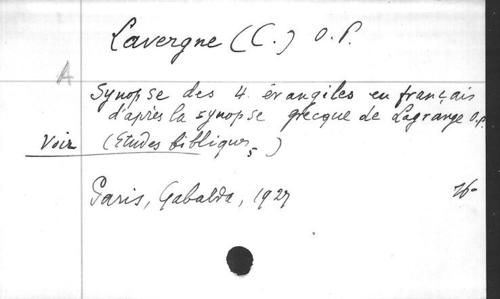 Lavergne (C.) O.P.
A
Synopse des 4 évangiles en français
d'après la synopse grecque de Lagrange O.P.
Voir (Etudes bibliques)
Paris, Gabalda, 1927